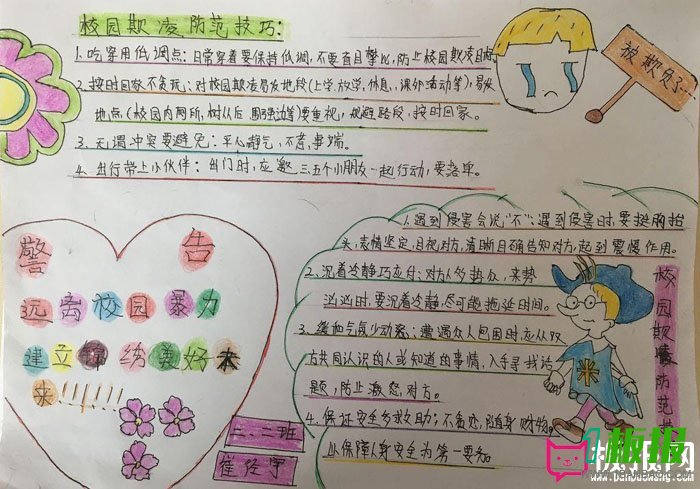 校园欺凌防范技巧:
1.吃穿用低调点:日常穿着要保持低调,不要盲目攀比,防止校园欺凌
2.按时回家不贪玩:对校园欺凌易发地段(上学、放学、休息、课外活动等),易发
地点(校园内厕所,树从后、围强边等)要重视,规避路段,按时回家。
3.无谓冲突要避免:平心静气,不惹事端。
4.出行带上小伙伴:出门时,应邀三五个小朋友一起行动,要落单。
被欺负了
警告
远离校园暴力
建立 美好未
来!!!!!!
二.二班
崔
1.遇到侵害会说"不":遇到侵害时,要挺胸抬
头,表情坚定,目视对方,清晰明确告知对方,起到震慑作用。
2.沉着冷静巧应付:对方人多势众,来势
汹汹时,要沉着冷静,尽可能拖延时间。
3.缓和气氛少动怒:遭遇众人包围时,应从双
方共同认识的人或知道的事情,入手寻找话
题,防止激怒对方。
4.保证安全多求助:不贪恋随身财物。
以保障人身安全为第一要务。
校园欺凌防范
板报网